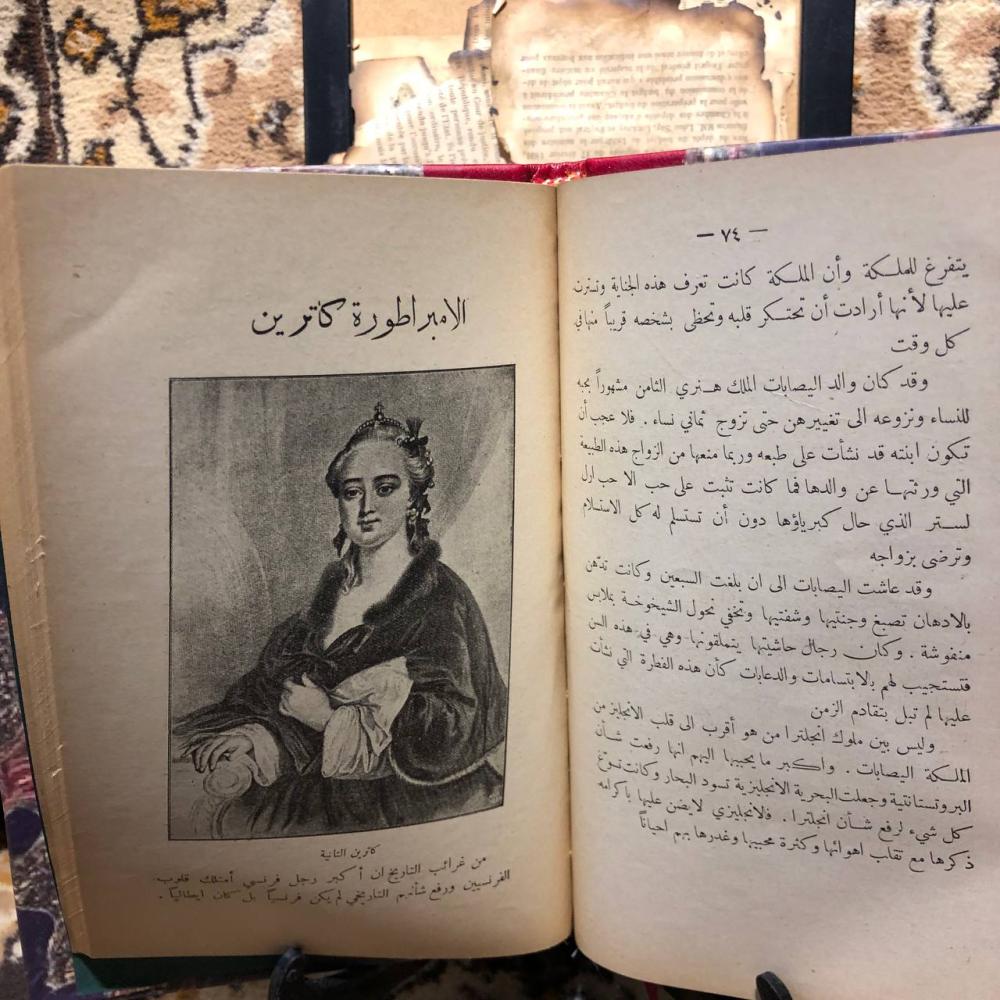 — ٧٤ —
يتفرغ للملكة وأن الملكة كانت تعرف هذه الجناية وتسترت
عليها لأنها أرادت أن تحتكر قلبه وتحظى بشخصه قريباً منها في
كل وقت
وقد كان والد اليصابات الملك هنري الثامن مشهوراً بحبه
للنساء ونزوعه الى تغييرهن حتى تزوج ثماني نساء . فلا عجب أن
تكون ابنته قد نشأت على طبعه وربما منعها من الزواج هذه الطبيعة
التي ورثتها عن والدها فما كانت تثبت على حب الا حب ارل
لستر الذي حال كبرياؤها دون أن تستسلم له كل الاستسلام
وترضى بزواجه
وقد عاشت اليصابات الى ان بلغت السبعين وكانت تدهن
بالادهان تصبغ وجنتيها وشفتيها وتخفي نحول الشيخوخة بملابس
منفوشة . وكان رجال حاشيتها يتملقونها وهي في هذه السن
فتستجيب لهم بالابتسامات والدعابات كأن هذه الفطرة التي نشأت
عليها لم تبل بتقادم الزمن
وليس بين ملوك انجلترا من هو أقرب الى قلب الانجليز من
الملكة اليصابات . واكبر ما يحببها اليهم انها رفعت شأن
البروتستانتية وجعلت البحرية الانجليزية تسود البحار وكانت تسوغ
كل شيء لرفع شأن انجلترا . فالانجليزي لا يضن عليها باكرامه
ذكرها مع تقلب اهوائها وكثرة محبيها وغدرها بهم احياناً
الامبراطورة كاترين
كاترين الثانية
من غرائب التاريخ ان أكبر رجل فرنسي أمتلك قلوب
الفرنسيين ورفع شأنهم التاريخي لم يكن فرنسياً بل كان ايطالياً .